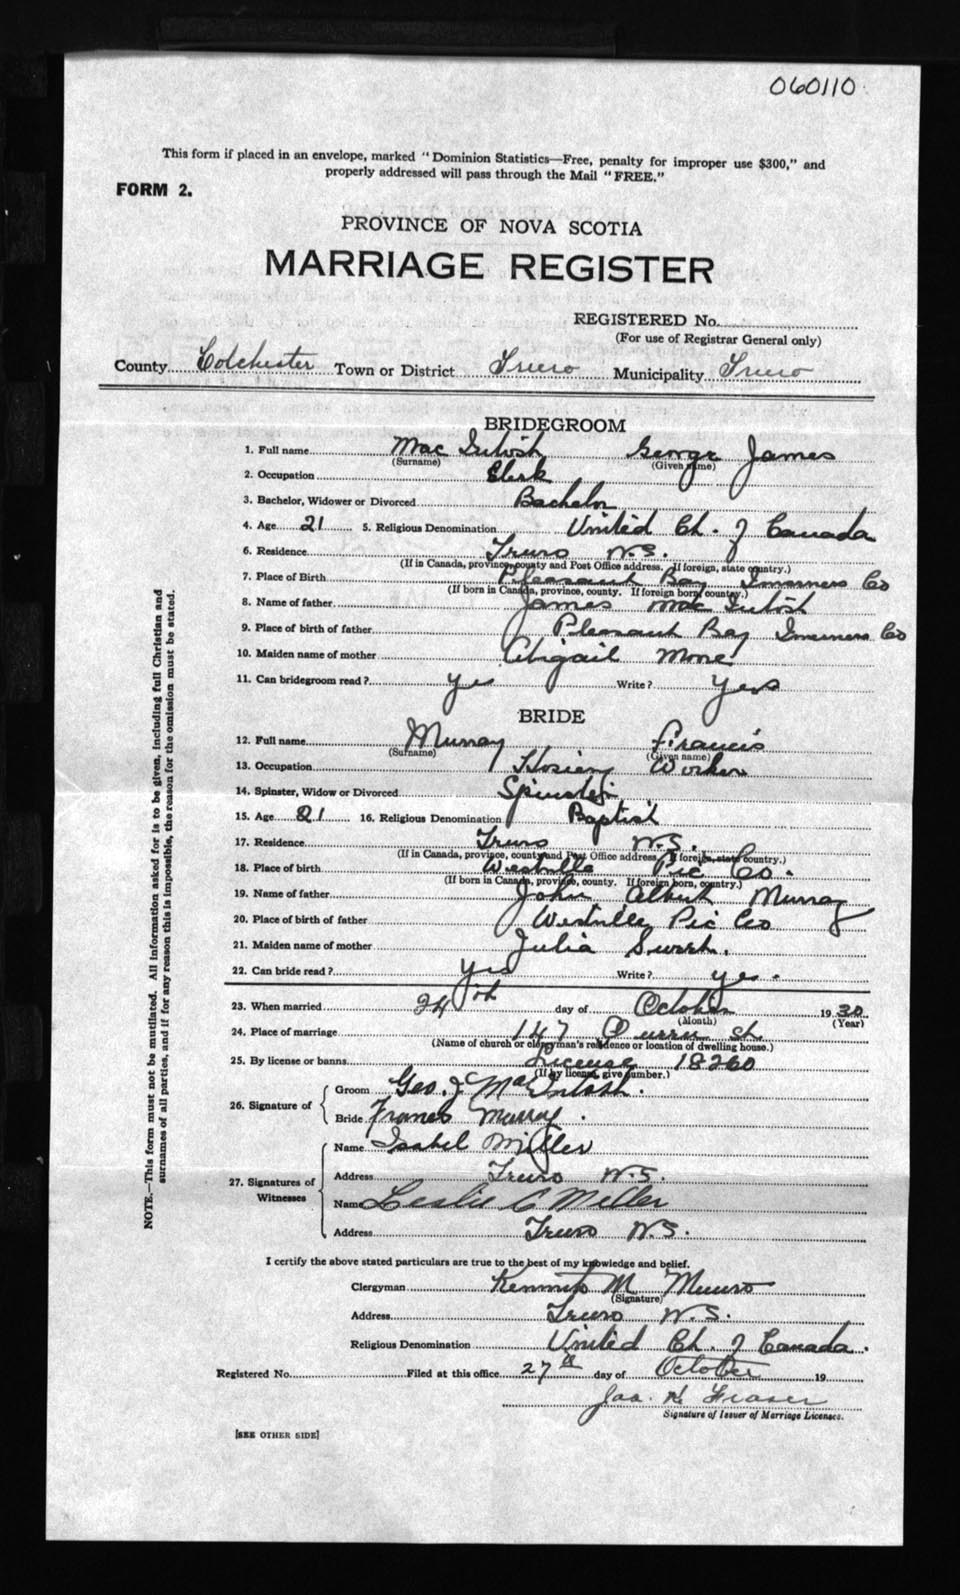 060110
This form if placed in an envelope, marked "Dominion Statistics—Free, penalty for improper use $300," and
properly addressed will pass through the Mail "FREE."
FORM 2.
PROVINCE OF NOVA SCOTIA
MARRIAGE REGISTER
REGISTERED No.
(For use of Registrar General only)
County Colchester Town or District Truro Municipality Truro
BRIDEGROOM
1. Full name MacIntosh George James
(Surname) (Given name)
2. Occupation Clerk
3. Bachelor, Widower or Divorced Bachelor
4. Age 21 5. Religious Denomination United Ch. of Canada
6. Residence Truro N.S.
(If in Canada, province, county and Post Office address. If foreign, state country.)
7. Place of Birth Pleasant Bay Inverness Co
(If born in Canada, province, county. If foreign born, country.)
8. Name of father James MacIntosh
9. Place of birth of father Pleasant Bay Inverness Co
10. Maiden name of mother Abigail
11. Can bridegroom read? yes Write? yes
BRIDE
12. Full name Murray Francis
(Surname) (Given name)
13. Occupation Hosiery Worker
14. Spinster, Widow or Divorced Spinster
15. Age 21 16. Religious Denomination Baptist
17. Residence Truro N.S.
(If in Canada, province, county and Post Office address. If foreign, state country.)
18. Place of birth Westville Pic Co.
(If born in Canada, province, county. If foreign born, country.)
19. Name of father John Albert Murray
20. Place of birth of father Westville Pic Co
21. Maiden name of mother Julia
22. Can bride read? yes Write? yes.
23. When married 24th day of October 1930
(Month) (Year)
24. Place of marriage 147 Queen St.
(Name of church or clergyman's residence or location of dwelling house.)
25. By license or banns License 18260
(If by license, give number.)
26. Signature of Groom Geo. J MacIntosh.
Bride Frances Murray.
27. Signatures of Witnesses Name Isabel Miller
Address Truro N.S.
Name Leslie C Miller
Address Truro N.S.
I certify the above stated particulars are true to the best of my knowledge and belief.
Clergyman M Munro
(Signature)
Address Truro N.S.
Religious Denomination United Ch. of Canada.
Registered No. Filed at this office 27th day of October 19
Jas. K. Fraser
Signature of Issuer of Marriage Licenses.
[SEE OTHER SIDE]
NOTE.—This form must not be mutilated. All information asked for is to be given, including full Christian and
surnames of all parties, and if for any reason this is impossible, the reason for the omission must be stated.